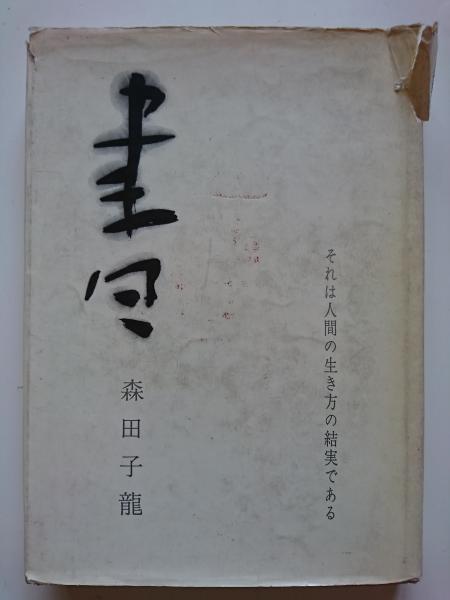 それは人間の生き方の結実である
書
森田子龍